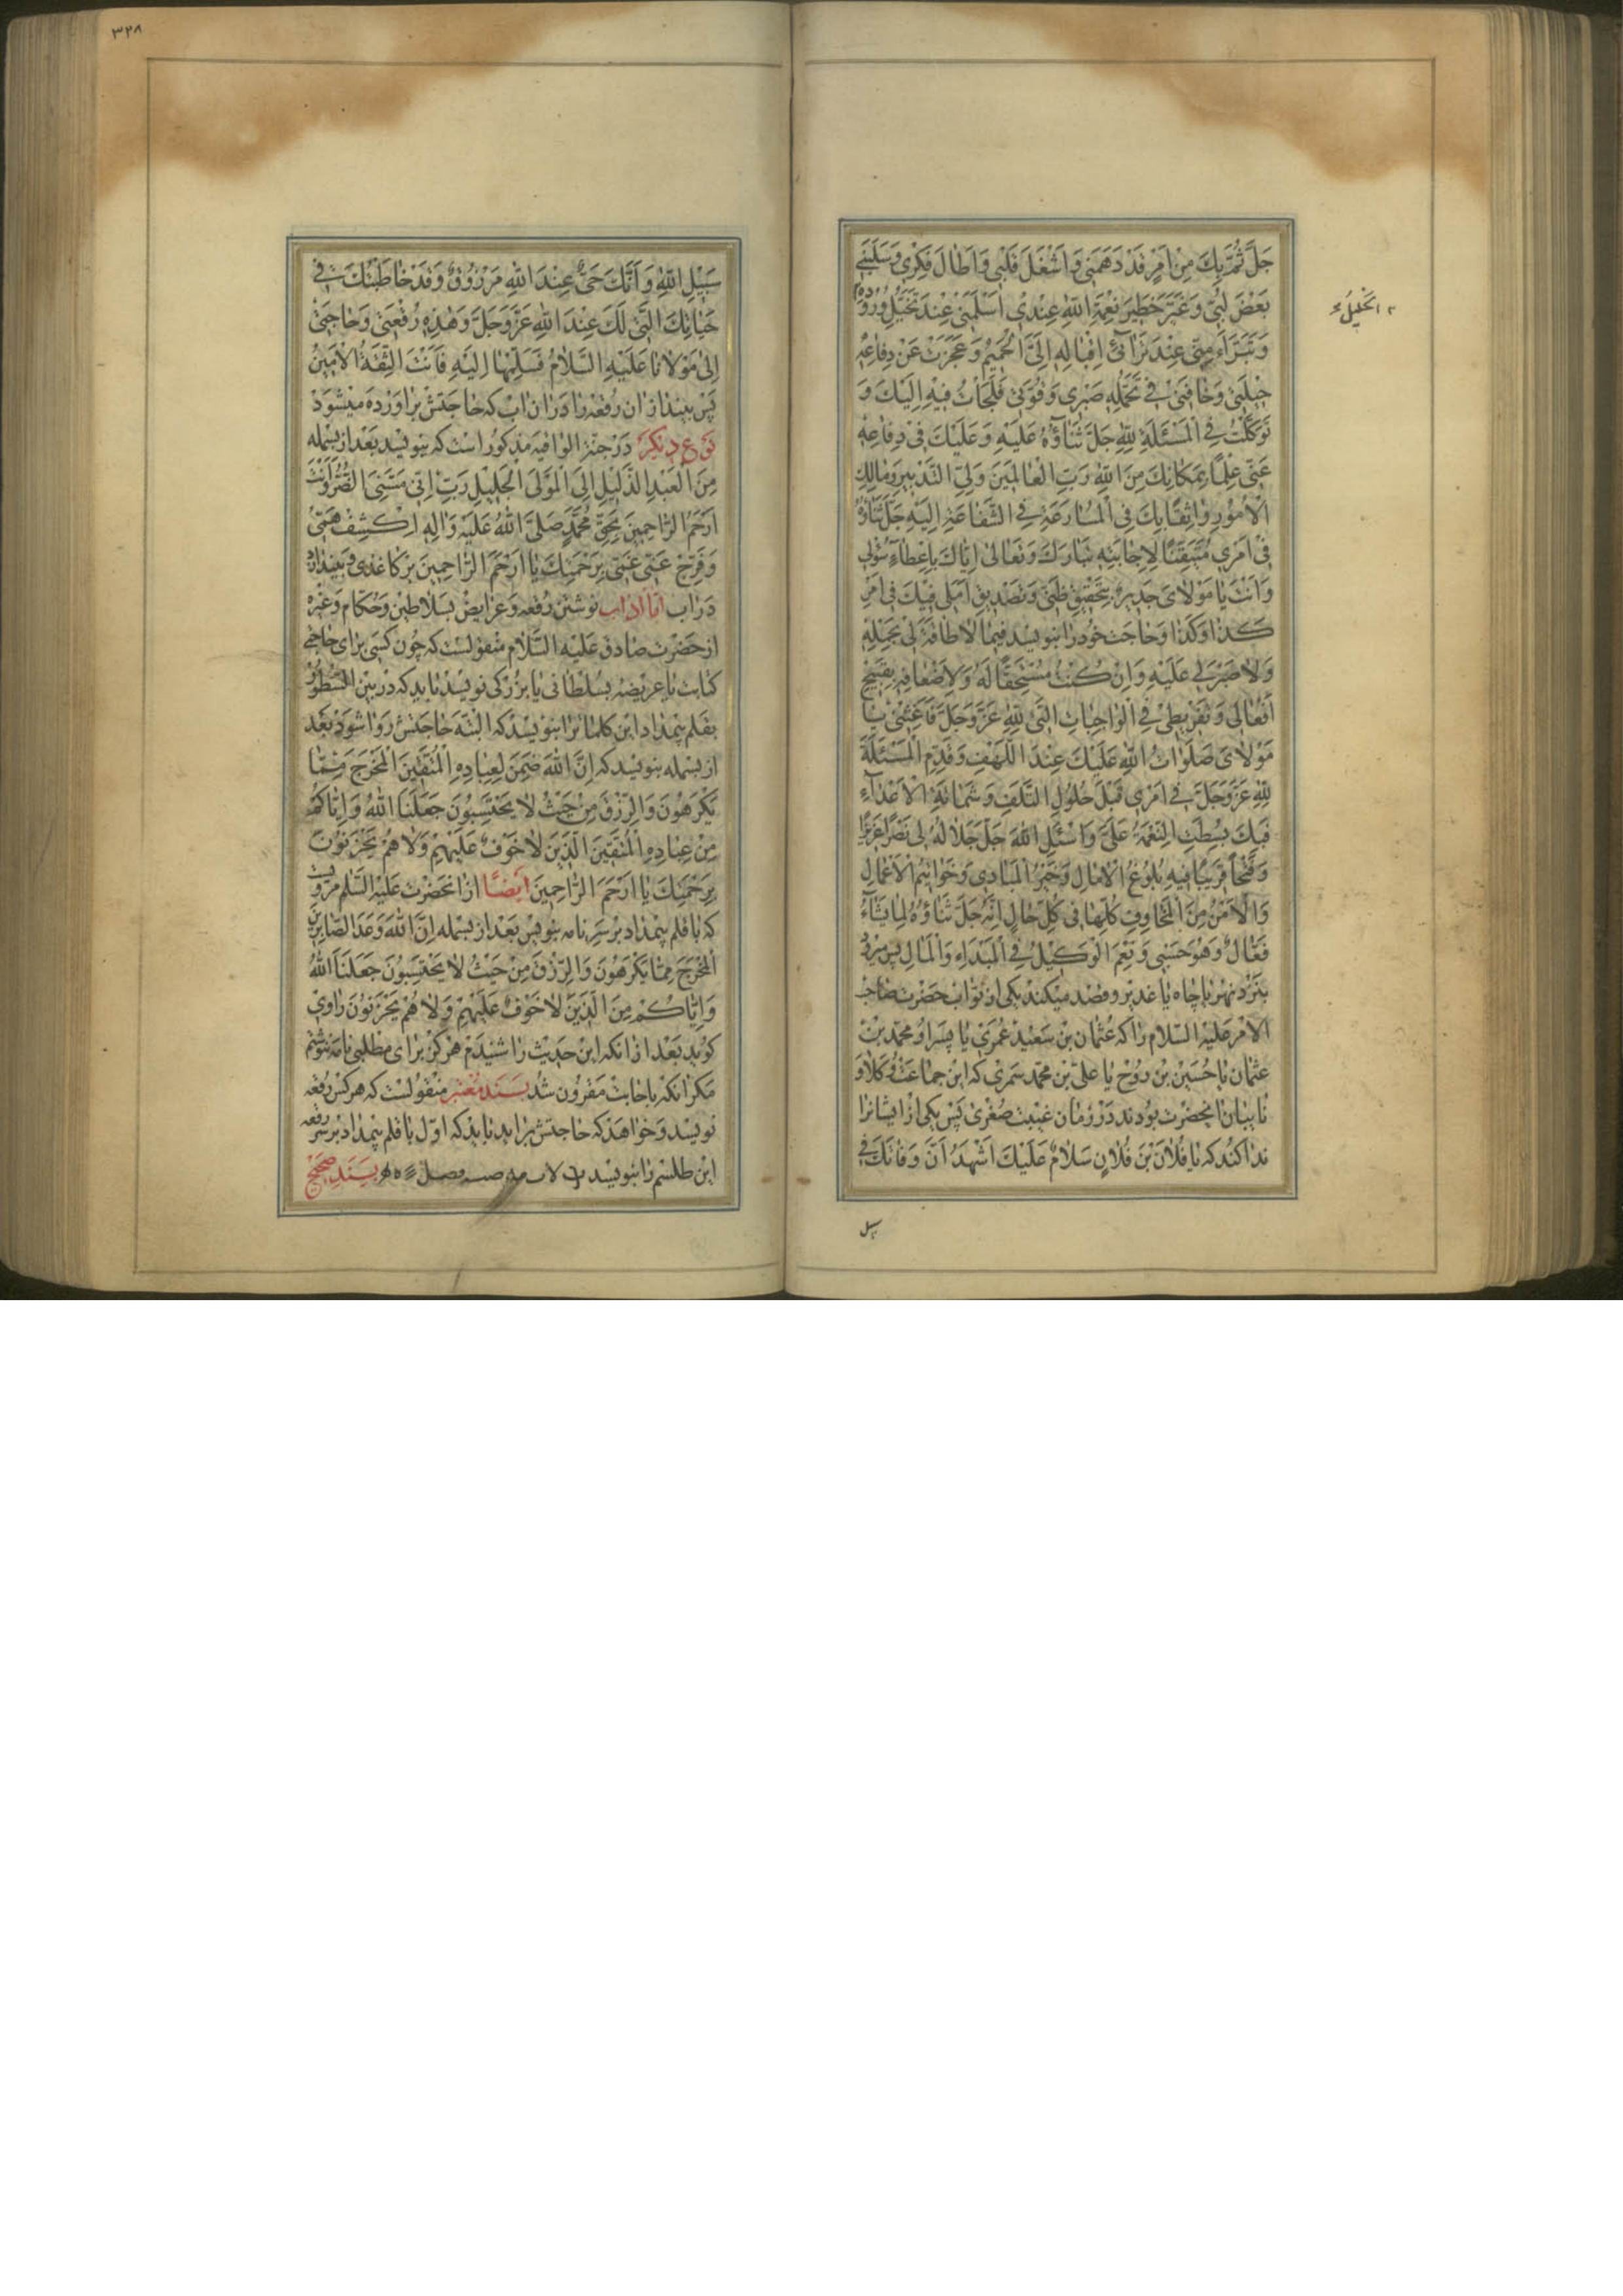 جَلَّ ثُمَّ بِكَ مِنْ اَمْرٍ قَدْ دَهَمَنی وَاَشْغَلَ قَلْبی وَاَطالَ فِکْری وَسَلَبَنی
بَعْضَ لُبّی وَغَیَّرَ خَطیرَ نِعْمَةِ اللّٰهِ عِنْدی اَسْلَمَنی عِنْدَ تَخَیُّلِ وُرُودِهِ
الْخَلیلُ
وَتَبَرَّاَ مِنّی عِنْدَ تَرائی اِقْبالِهِ اِلَیَّ الْحَمیمُ وَعَجَزَتْ عَنْ دِفاعِهِ
حیلَتی وَخانَنی فی تَحَمُّلِهِ صَبْری وَقُوَّتی فَلَجَأْتُ فیهِ اِلَیْكَ وَ
تَوَکَّلْتُ فِی الْمَسْئَلَةِ لِلّٰهِ جَلَّ ثَناؤُهُ عَلَیْهِ وَعَلَیْكَ فی دِفاعِهِ
عَنّی عِلْماً بِمَکانِكَ مِنَ اللّٰهِ رَبِّ الْعالَمینَ وَلِیِّ التَّدْبیرِ وَمالِكِ
الْاُمُورِ واثِقاً بِكَ فِی الْمُسارَعَةِ فِی الشَّفاعَةِ اِلَیْهِ جَلَّ ثَناؤُهُ
فی اَمْری مُتَیَقِّناً لِاِجابَتِهِ تَبارَكَ وَتَعالی اِیّاكَ بِاِعْطاءِ سُؤْلی
وَاَنْتَ یا مَوْلایَ جَدیرٌ بِتَحْقیقِ ظَنّی وَتَصْدیقِ اَمَلی فیكَ فی اَمْرِ
کَذا وَکَذا وَحاجت خود را بنویسد فیما لا طاقَةَ لی بِحَمْلِهِ
وَلا صَبْرَ لی عَلَیْهِ وَاِنْ کُنْتُ مُسْتَحِقّاً لَهُ وَلِاَضْعافِهِ بِقَبیحِ
اَفْعالی وَتَفْریطی فِی الْواجِباتِ الَّتی لِلّٰهِ عَزَّوَجَلَّ فَاَغِثْنی یا
مَوْلایَ صَلَواتُ اللّٰهِ عَلَیْكَ عِنْدَ اللَّهْفِ وَقَدِّمِ الْمَسْئَلَةَ
لِلّٰهِ عَزَّوَجَلَّ فی اَمْری قَبْلَ حُلُولِ التَّلَفِ وَشَماتَةِ الْاَعْداءِ
فَبِكَ بُسِطَتِ النِّعْمَةُ عَلَیَّ وَاسْئَلِ اللّٰهَ جَلَّ جَلالُهُ لی نَصْراً عَزیزاً
وَفَتْحاً قَریباً فیهِ بُلُوغُ الْامالِ وَخَیْرُ الْمَبادی وَخَواتیمُ الْاَعْمالِ
وَالْاَمْنُ مِنَ الْمَخاوِفِ کُلِّها فی کُلِّ حالٍ اِنَّهُ جَلَّ ثَناؤُهُ لِما یَشاءُ
فَعّالٌ وَهُوَ حَسْبی وَنِعْمَ الْوَکیلُ فِی الْمَبْدَاءِ وَالْمالِ پس میرود
بنزد نهر یا چاه یا غدیر و قصد میکند یکی از نواب حضرت صاحب
الامر علیه السلام را که عثمان بن سعید عمری یا پسر او محمد بن
عثمان یا حسین بن روح یا علی بن محمد سمری که این جماعت وکلا و
نایبان انحضرت بودند در زمان غیبت صغری پس یکی از ایشانرا
ندا کند که یا فُلانَ بْنَ فُلانٍ سَلامٌ عَلَیْكَ اَشْهَدُ اَنَّ وَفاتَكَ فی
سبیل
۳۲۸
سَبیلِ اللّٰهِ وَاَنَّكَ حَیٌّ عِنْدَ اللّٰهِ مَرْزُوقٌ وَقَدْ خاطَبْتُكَ فی
حَیاتِكَ الَّتی لَكَ عِنْدَ اللّٰهِ عَزَّوَجَلَّ وَهٰذِهِ رُقْعَتی وَحاجَتی
اِلی مَوْلانا عَلَیْهِ السَّلامُ فَسَلِّمْها اِلَیْهِ فَاَنْتَ الثِّقَةُ الْاَمینُ
پس بیندازان رقعه را دران اب که حاجتش براورده میشود
نوع دیگر در جنة الواقیه مذکور است که بنویسد بعد از بسمله
مِنَ الْعَبْدِ الذَّلیلِ اِلَی الْمَوْلَی الْجَلیلِ رَبِّ اِنّی مَسَّنِیَ الضُّرُّ وَاَنْتَ
اَرْحَمُ الرّاحِمینَ بِحَقِّ مُحَمَّدٍ صَلَّی اللّٰهُ عَلَیْهِ وَالِهِ اِکْشِفْ هَمّی
وَفَرِّجْ عَنّی غَمّی بِرَحْمَتِكَ یا اَرْحَمَ الرّاحِمینَ بر کاغذی و بیندازد
دراب اما اداب نوشتن رقعه و عرایض بسلاطین و حکام و غیره
از حضرت صادق علیه السلام منقولست که چون کسی برای حاجتی
کتابت یا عریضه بسلطانی یا بزرکی نویسد باید که در بین السطور
بقلم بیمداد این کلماترا بنویسد که البته حاجتش روا شود بعد
از بسمله بنویسد که اِنَّ اللّٰهَ ضَمِنَ لِعِبادِهِ الْمُتَّقینَ الْمَخْرَجَ مِمّا
یَکْرَهُونَ وَالرِّزْقَ مِنْ حَیْثُ لا یَحْتَسِبُونَ جَعَلَنَا اللّٰهُ وَاِیّاکُمْ
مِنْ عِبادِهِ الْمُتَّقینَ الَّذینَ لا خَوْفٌ عَلَیْهِمْ وَلا هُمْ یَحْزَنُونَ
بِرَحْمَتِكَ یا اَرْحَمَ الرّاحِمینَ ایضًا از انحضرت علیه السلم مرویست
که با قلم بیمداد بر سر نامه بنویس بعد از بسمله اِنَّ اللّٰهَ وَعَدَ الصّابِرینَ
الْمَخْرَجَ مِمّا یَکْرَهُونَ وَالرِّزْقَ مِنْ حَیْثُ لا یَحْتَسِبُونَ جَعَلَنَا اللّٰهُ
وَاِیّاکُمْ مِنَ الَّذینَ لا خَوْفٌ عَلَیْهِمْ وَلا هُمْ یَحْزَنُونَ راوی
کوید بعد از انکه این حدیث را شنیدم هرکز برای مطلبی نامه ننوشتم
مکر انکه باجابت مقرون شد بسند معتبر منقولست که هرکس رقعه
نویسد و خواهد که حاجتش براید باید که اول با قلم بیمداد بر سر رقعه
این طلسم را بنویسد بسند صحیح